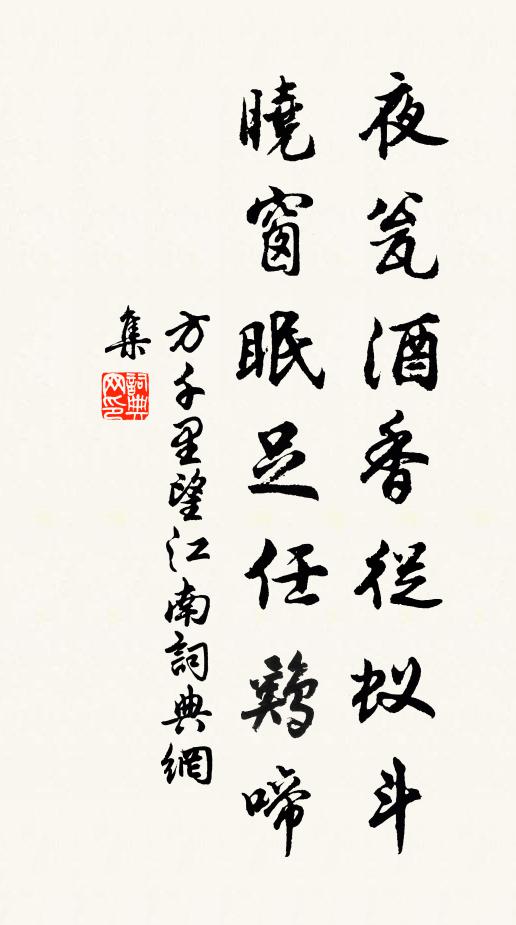 夜瓮酒香從蚁斗
曉窗眠足任鷄啼
方千里望江南詞典網
集
詞典
网印